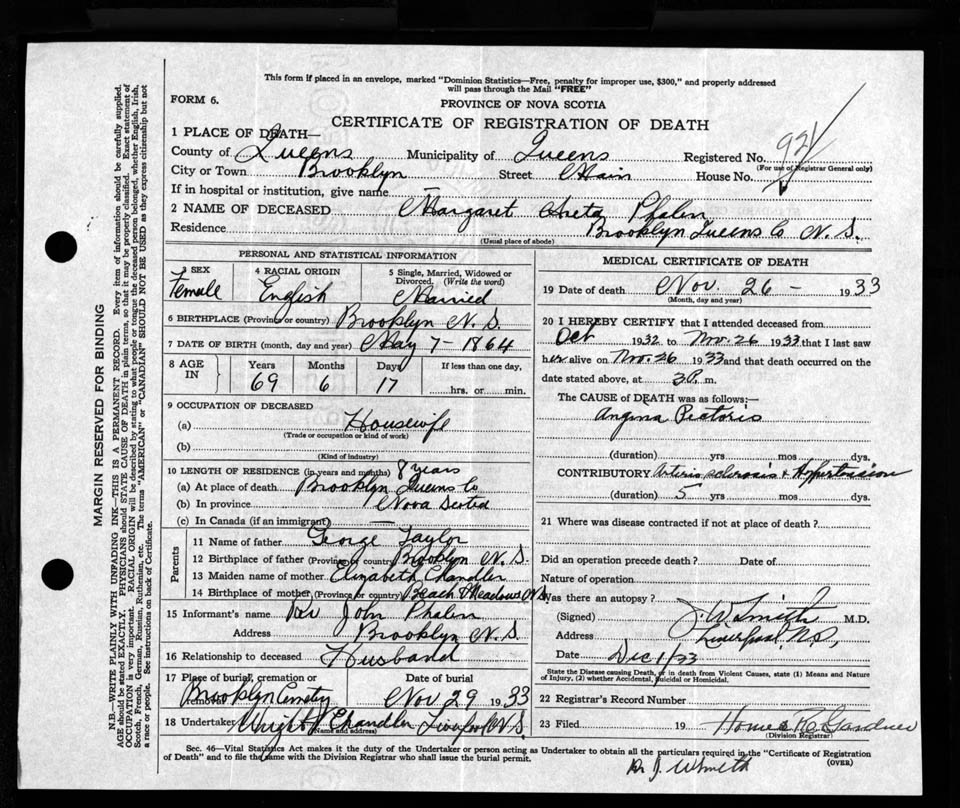 This form if placed in an envelope, marked "Dominion Statistics—Free, penalty for improper use, $300," and properly addressed
will pass through the Mail "FREE"
FORM 6.
PROVINCE OF NOVA SCOTIA
CERTIFICATE OF REGISTRATION OF DEATH
1 PLACE OF DEATH—
County of Queens Municipality of Queens Registered No. 921
(For use of Registrar General only)
City or Town Brooklyn Street Main House No.
If in hospital or institution, give name —
2 NAME OF DECEASED Margaret Areta Phalen
Residence Brooklyn Queens Co N. S.
(Usual place of abode)
PERSONAL AND STATISTICAL INFORMATION
3 SEX Female
4 RACIAL ORIGIN English
5 Single, Married, Widowed or
Divorced. (Write the word) Married
6 BIRTHPLACE (Province or country) Brooklyn N. S.
7 DATE OF BIRTH (month, day and year) May 7 - 1864
8 AGE IN
Years Months Days If less than one day,
69 6 17 hrs. or min.
9 OCCUPATION OF DECEASED
(a) Housewife
(Trade or occupation or kind of work)
(b)
(Kind of industry)
10 LENGTH OF RESIDENCE (in years and months) 8 years
(a) At place of death Brooklyn Queens Co
(b) In province Nova Scotia
(c) In Canada (if an immigrant) —
Parents
11 Name of father George Taylor
12 Birthplace of father (Province or country) Brooklyn N. S.
13 Maiden name of mother Elizabeth Chandler
14 Birthplace of mother (Province or country) Beach Meadows N.S.
15 Informant's name John Phalen
Address Brooklyn N. S.
16 Relationship to deceased Husband
17 Place of burial, cremation or removal Date of burial
Brooklyn Cemetery Nov 29 1933
18 Undertaker Wright Chandler Liverpool N. S.
(Name and address)
MEDICAL CERTIFICATE OF DEATH
19 Date of death Nov. 26 - 1933
(Month, day and year)
20 I HEREBY CERTIFY that I attended deceased from
Oct 1932 to Nov. 26 1933 that I last saw
her alive on Nov. 26 1933 and that death occurred on
date stated above, at 3 P. m.
The CAUSE of DEATH was as follows:—
Angina Pectoris
(duration) yrs. mos. dys.
CONTRIBUTORY Arterio sclerosis & Hypertension
(duration) 5 yrs. mos. dys.
21 Where was disease contracted if not at place of death?
Did an operation precede death? Date of
Nature of operation
Was there an autopsy?
(Signed) J. W. Smith M.D.
Address Liverpool, N.S.,
Date Dec 1/33
State the Disease causing Death, or in death from Violent Causes, state (1) Means and Nature
of Injury, (2) whether Accidental, Suicidal or Homicidal.
22 Registrar's Record Number
23 Filed 19 Gardner
(Division Registrar)
Sec. 46—Vital Statistics Act makes it the duty of the Undertaker or person acting as Undertaker to obtain all the particulars required in the "Certificate of Registration
of Death" and to file the same with the Division Registrar who shall issue the burial permit. (OVER)
Dr J. W Smith
MARGIN RESERVED FOR BINDING
N.B.—WRITE PLAINLY WITH UNFADING INK—THIS IS A PERMANENT RECORD. Every item of information should be carefully supplied.
AGE should be stated EXACTLY. PHYSICIANS should STATE CAUSE OF DEATH in plain terms, so that it may be properly classified. Exact statement of
OCCUPATION is very important. RACIAL ORIGIN will be described by stating to what people or tongue the deceased person belonged, whether English, Irish,
Scotch, French, German, Russian, Ruthenian, etc. The terms "AMERICAN" or "CANADIAN" SHOULD NOT BE USED as they express citizenship but not
a race or people. See instructions on back of Certificate.